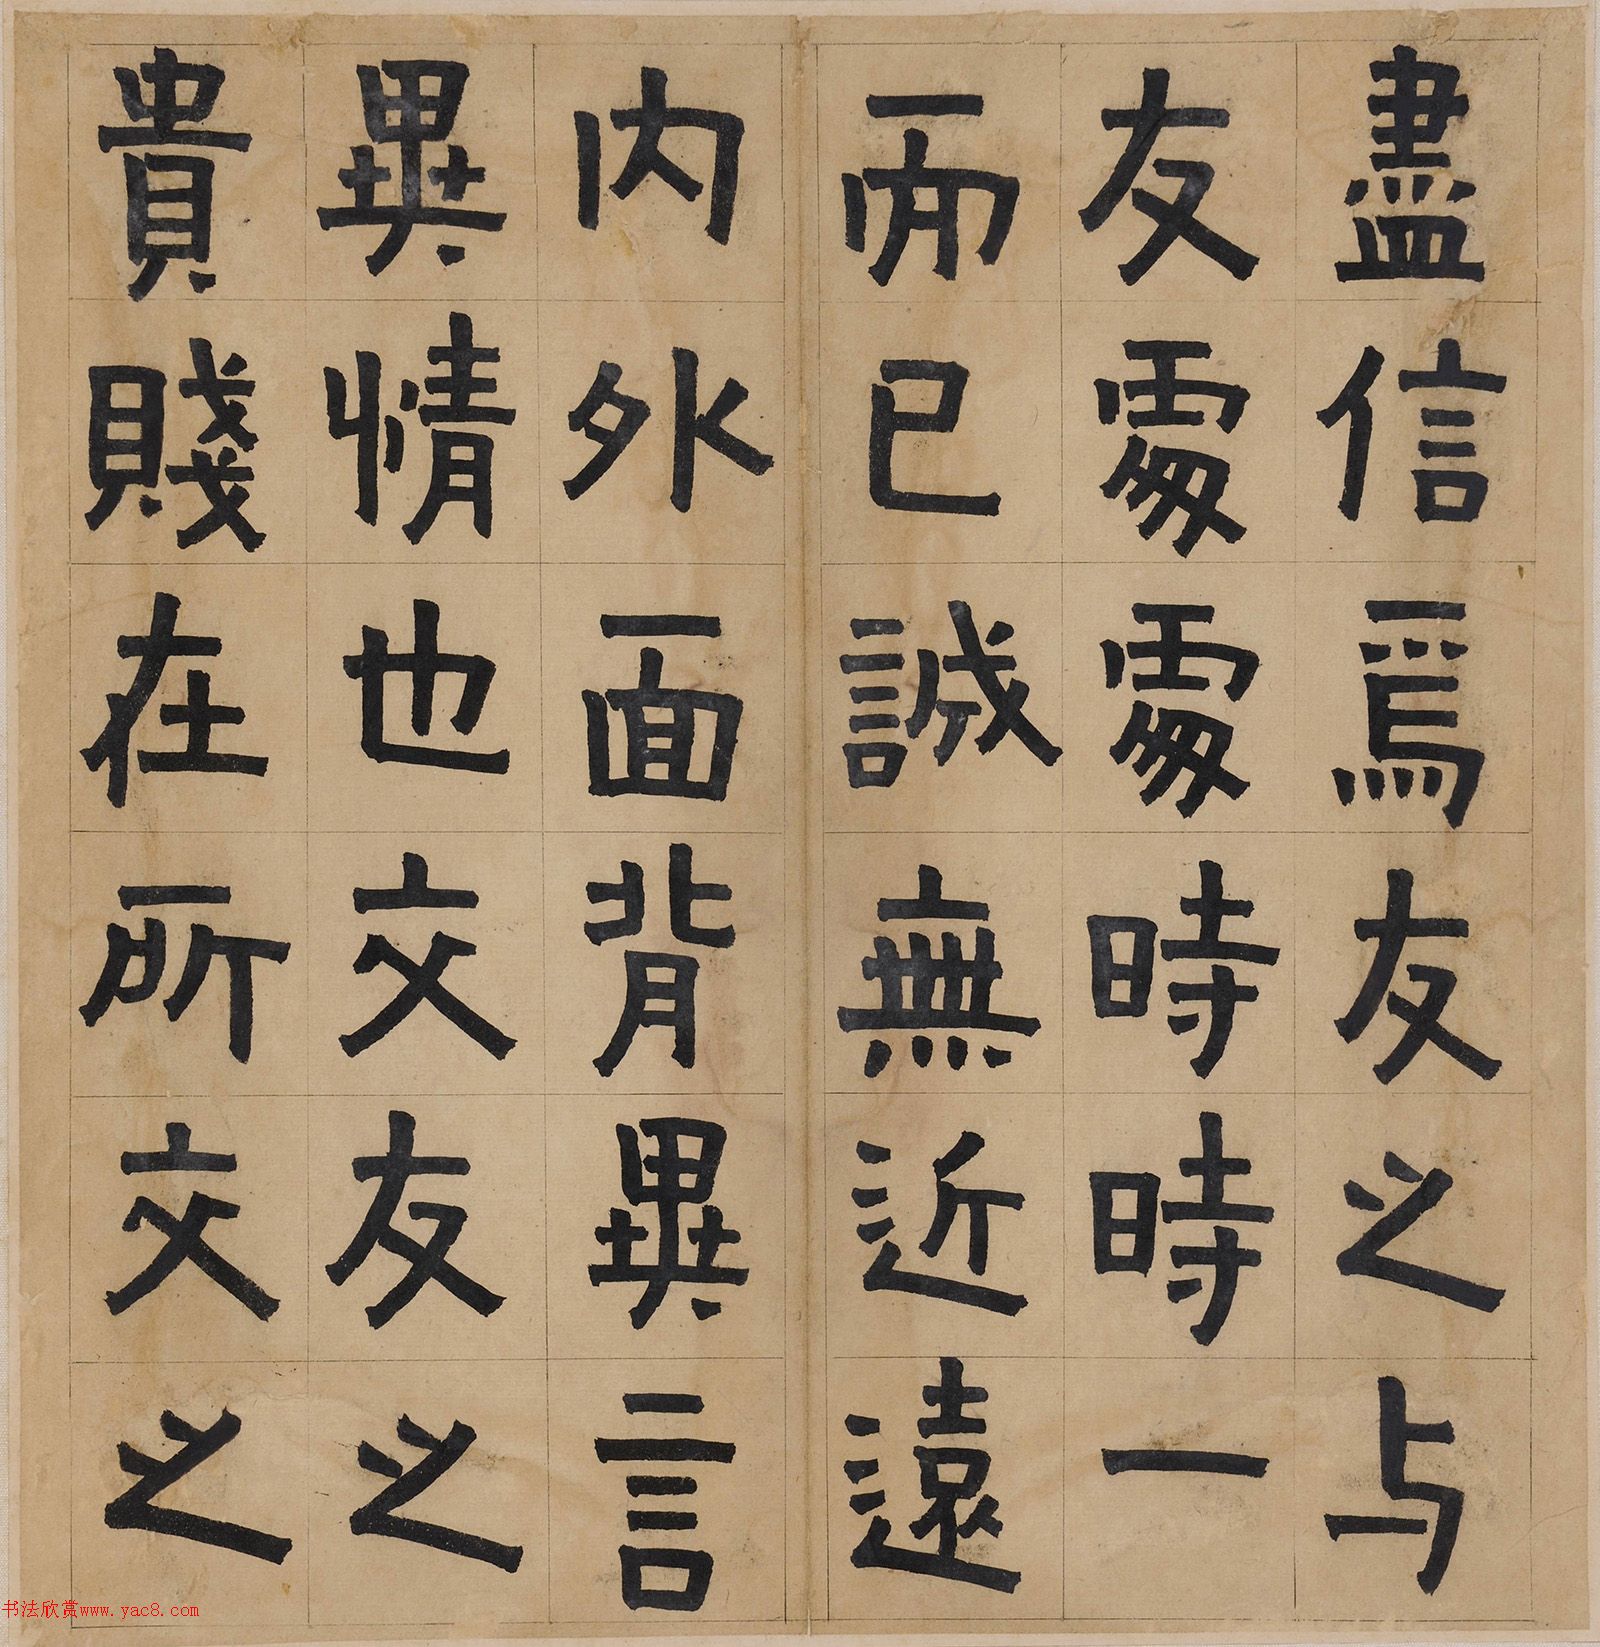 盡信焉友之与
友處處時時一
而已誠無近遠
内外面背異言
異情也交友之
貴賤在所交之
书法欣赏www.yac8.com